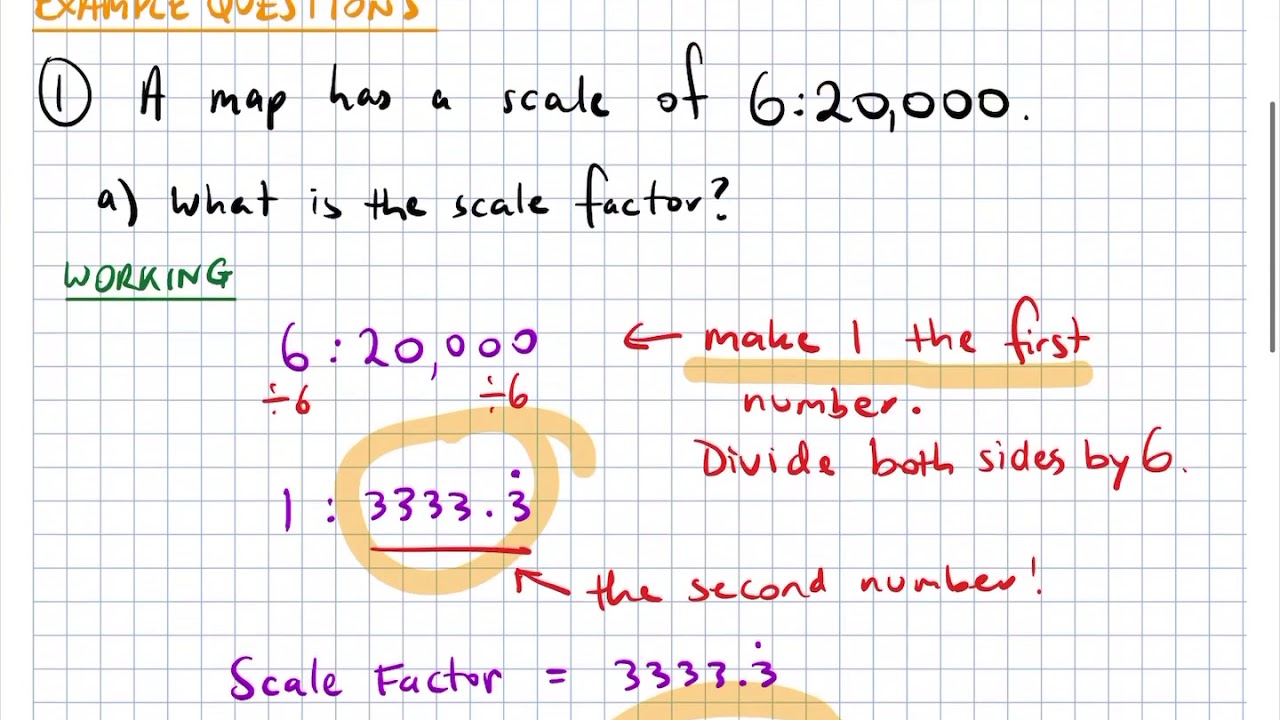 EXAMPLE QUESTIONS
① A map has a scale of 6:20,000.
a) What is the scale factor?
WORKING
6 : 20,000 ← make 1 the first
÷6 ÷6 number.
Divide both sides by 6.
1 : 3333.3̇
the second number!
Scale Factor = 3333.3̇